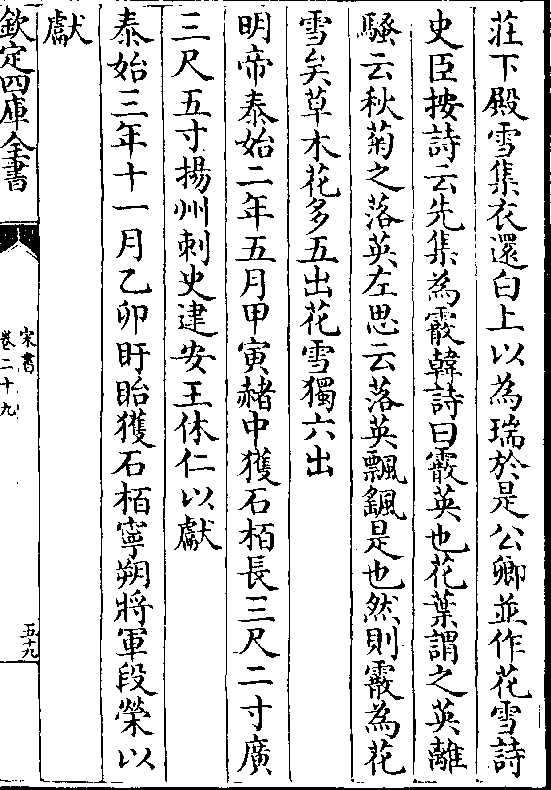 莊下殿雪集衣還白上以為瑞於是公卿並作花雪詩
史臣按詩云先集為霰韓詩曰霰英也花葉謂之英離
騷云秋菊之落英左思云落英飄颻是也然則霰為花
雪矣草木花多五出花雪獨六出
明帝泰始二年五月甲寅赭中獲石栢長三尺二寸廣
三尺五寸揚州刺史建安王休仁以獻
泰始三年十一月乙卯盱眙獲石栢寧朔將軍段榮以
獻
欽定四庫全書
宋書
卷二十九
五十九